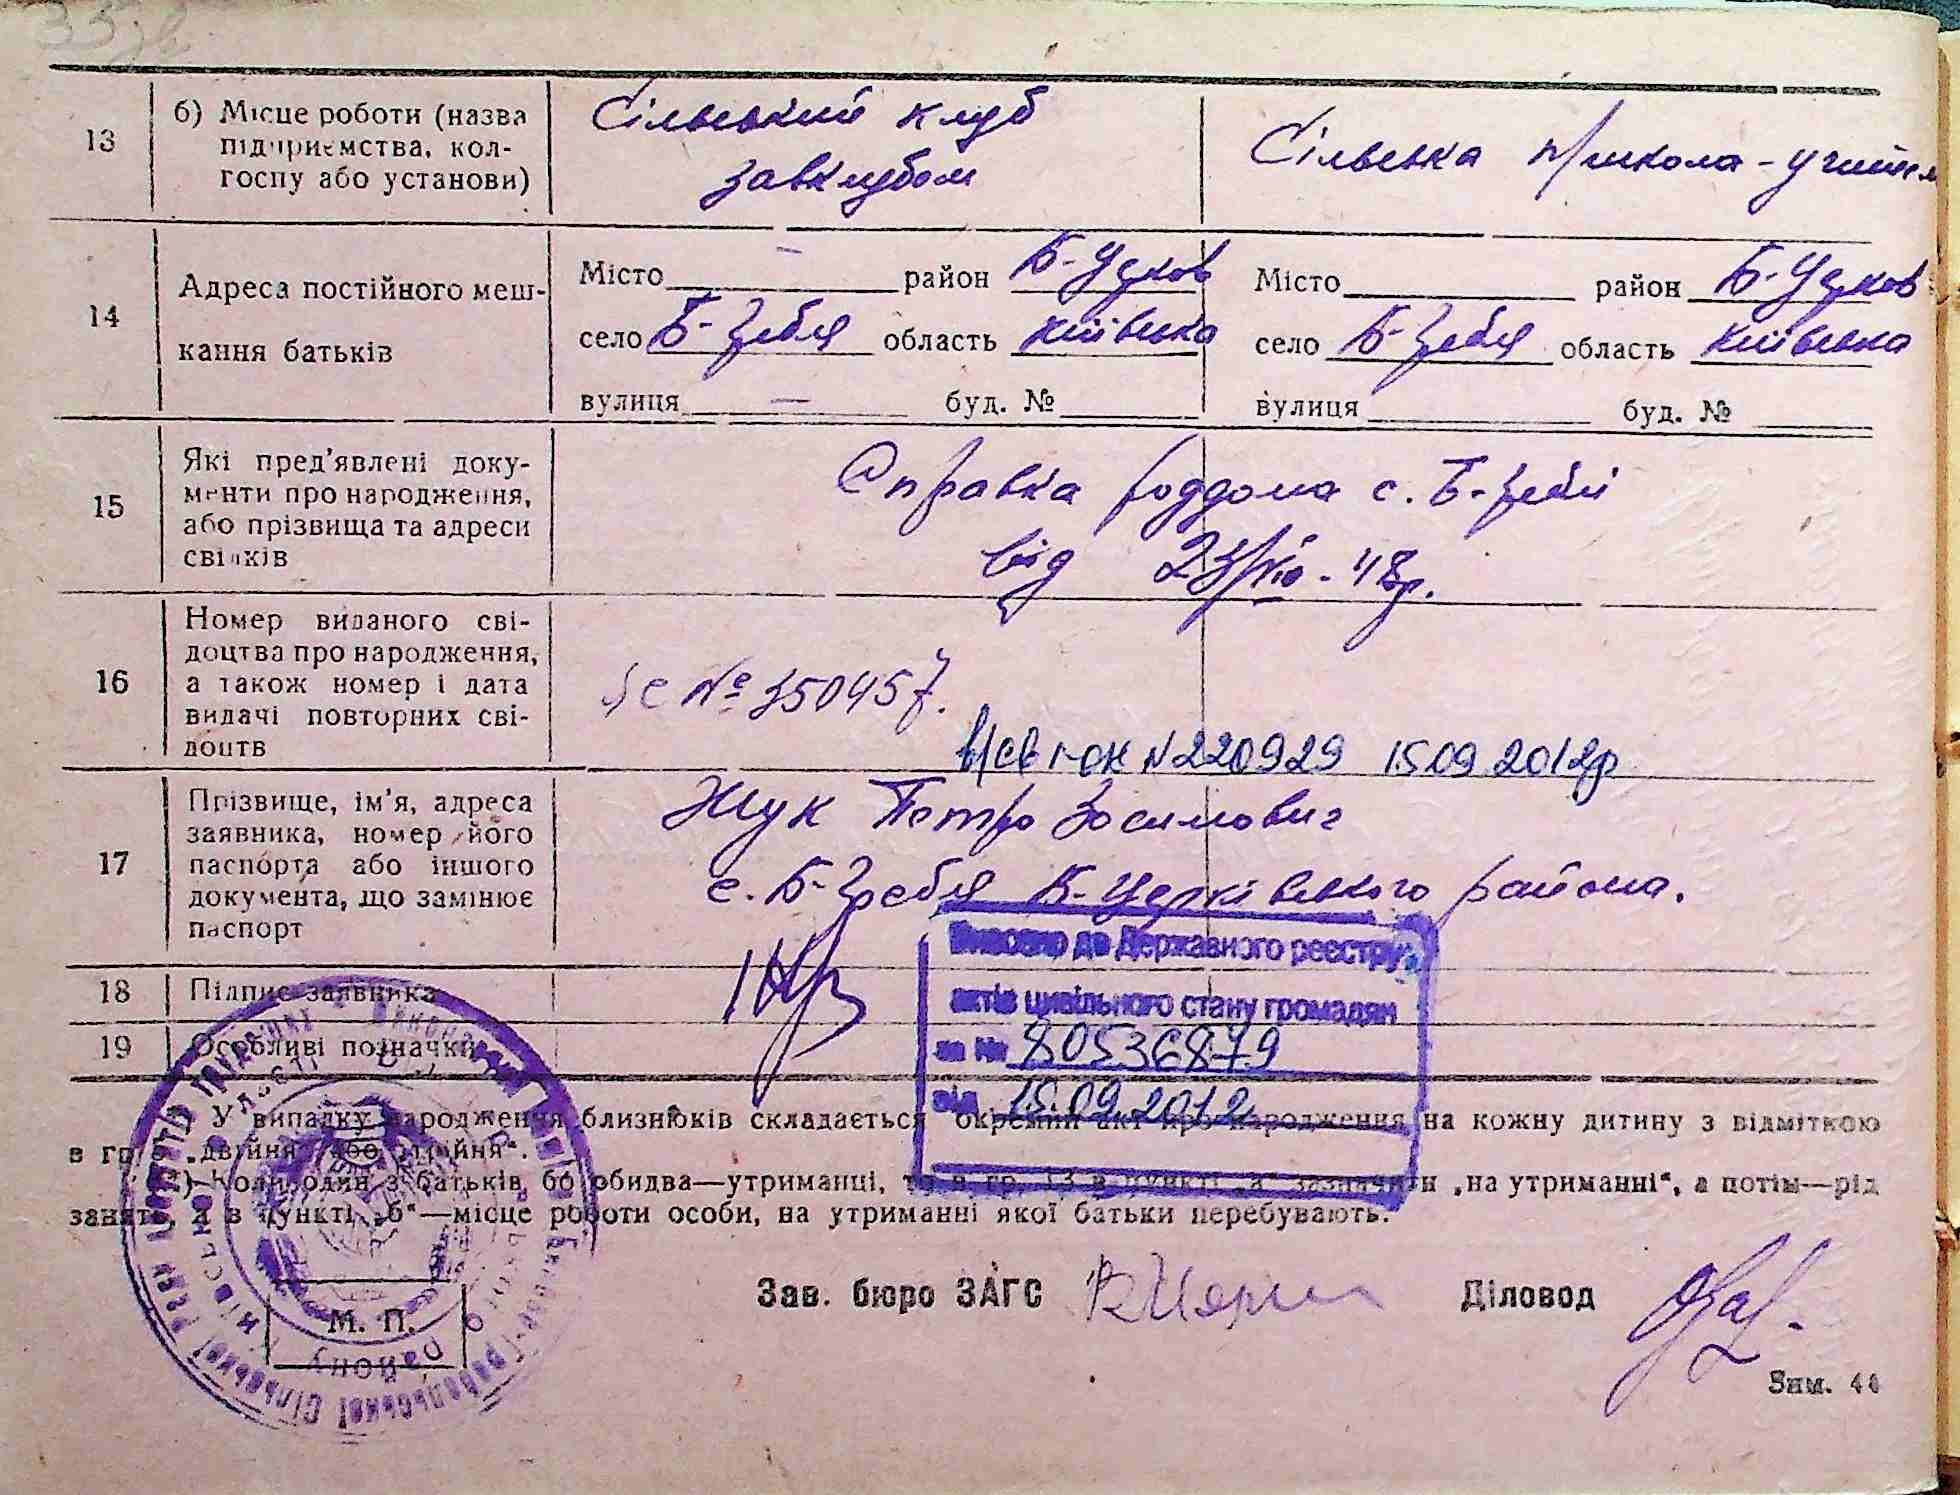 13
б) Місце роботи (назва
підприємства, кол-
госпу або установи)
Сільський клуб
завклубом
Сільська школа - учител
14
Адреса постійного меш-
кання батьків
Місто — район Б-Церков
село Б-Гребля область Київська
вулиця — буд. №
Місто район Б-Церков
село Б-Гребля область Київська
вулиця буд. №
15
Які пред'явлені доку-
менти про народження,
або прізвища та адреси
свідків
Справка роддома с. Б-Греблі
від 23/VIII - 48р.
16
Номер виданого сві-
доцтва про народження,
а також номер і дата
видачі повторних сві-
доцтв
№ 350457.
I-ОК N 220929 15.09 2012р
17
Прізвище, ім'я, адреса
заявника, номер його
паспорта або іншого
документа, що замінює
паспорт
Жук Петро Зосимович
с. Б-Гребля Б-Церківського района.
18
Підпис заявника
19
Особливі позначки
Внесено до Державного реєстру
актів цивільного стану громадян
за № 80536879
від 15.09.2012
У випадку народження близнюків складається окремий акт про народження на кожну дитину з відміткою
в гр. „двійня" або „трійня".
Коли один з батьків, або обидва—утриманці, то в гр. 13 в пункті „а" зазначити „на утриманні", а потім—рід
занять, а в пункті „б"—місце роботи особи, на утриманні якої батьки перебувають.
М. П.
району
Зав. бюро ЗАГС
Діловод
Зим. 44